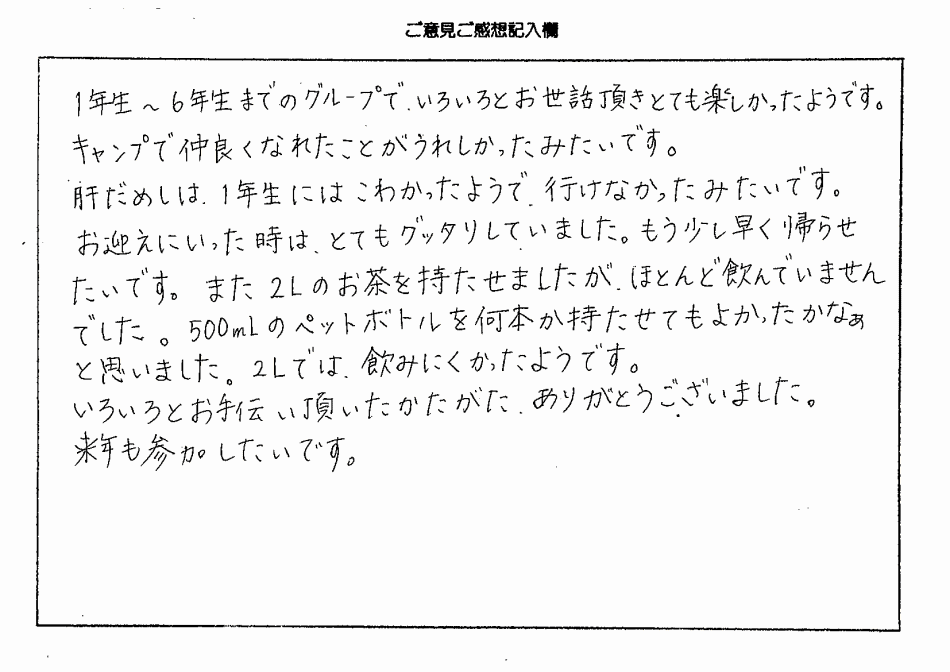 ご意見ご感想記入欄
1年生～6年生までのグループで、いろいろとお世話頂きとても楽しかったようです。
キャンプで仲良くなれたことがうれしかったみたいです。
肝だめしは、1年生にはこわかったようで、行けなかったみたいです。
お迎えにいった時は、とてもグッタリしていました。もう少し早く帰らせ
たいです。また2Lのお茶を持たせましたが、ほとんど飲んでいません
でした。500mLのペットボトルを何本か持たせてもよかったかなぁ
と思いました。2Lでは、飲みにくかったようです。
いろいろとお手伝い頂いたかたがた、ありがとうございました。
来年も参加したいです。